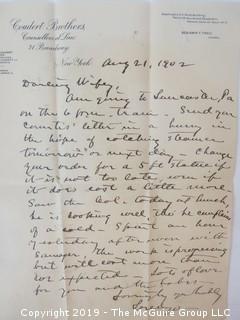 Coudert Brothers,
Counsellors at Law
71 Broadway
New York Aug 21, 1902
Darling Wifey:
Am going to Lancaster, Pa
on the 6 p.m. train. Send you
letter in a hurry in
the hope of catching steamer
tomorrow or next day. Change
your order for a 5 ft statue if
it is not too late, even if
it does cost a little more
Saw the Col. today at lunch,
he is looking well, tho' he complains
of a cold - Spent an hour
yesterday afternoon with
Sawyer. The work is progressing
but will cost more than
expected - Lots of love
for you and the babes -
Copyright 2019 - DragonflyAuctions.com